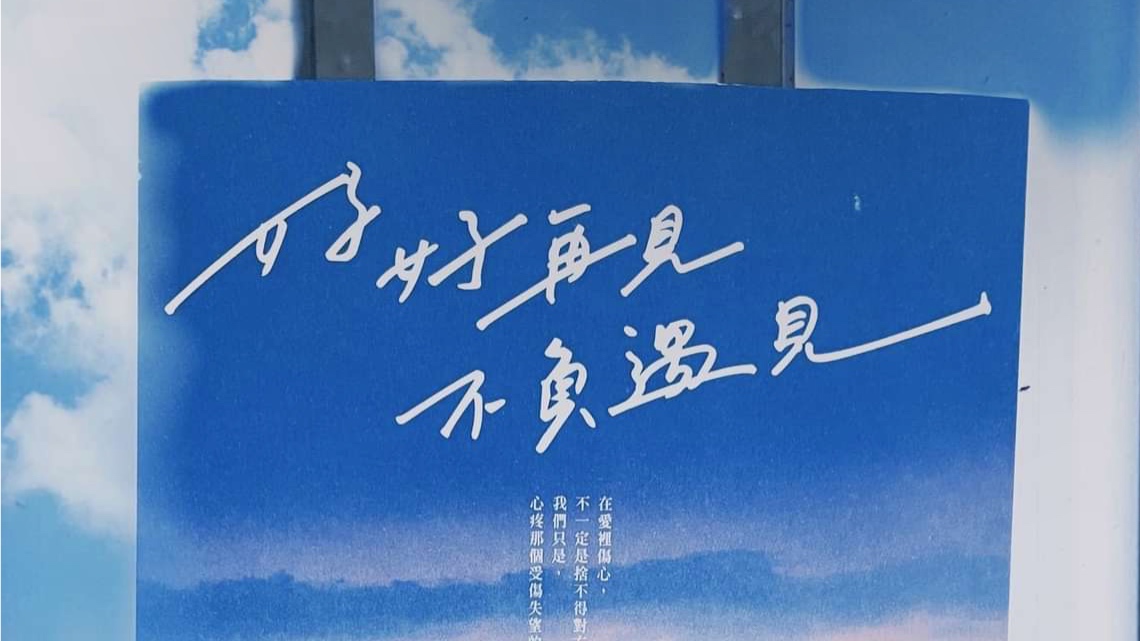 好好再見
不負遇見
在愛裡傷心，
不一定是捨不得對方
我們只是，
心疼那個受傷失望的